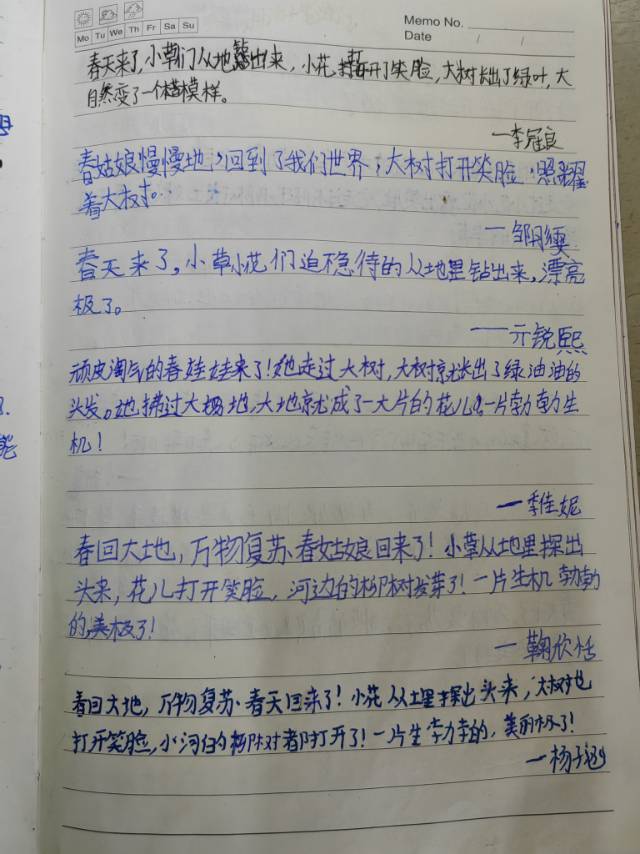 Memo No.
Mo Tu We Th Fr Sa Su
Date / /
春天来了,小草们从地钻出来,小花打开了笑脸,大树长出了绿叶,大
自然变了一个模样。
一李冠良
春姑娘慢慢地,回到了我们世界,大树打开笑脸,照耀
着大树。
一邹
春天来了。小草小花们迫不急待的从地里钻出来,漂亮
极了。
——亓锐熙
顽皮淘气的春娃娃来了!她走过大树,大树就长出了绿油油的
头发。她拂过大地,大地就成了一大片的花儿。一片勃勃生
机!
一李佳妮
春回大地,万物复苏、春姑娘回来了!小草从地里探出
头来,花儿打开笑脸,河边的柳树发芽了!一片生机勃勃
的,美极了!
一鞠欣恬
春回大地,万物复苏、春天回来了!小花从土里探出头来,大树也
打开笑脸,小河的柳树都打开了!一片生勃勃的,美丽极了!
一杨
能